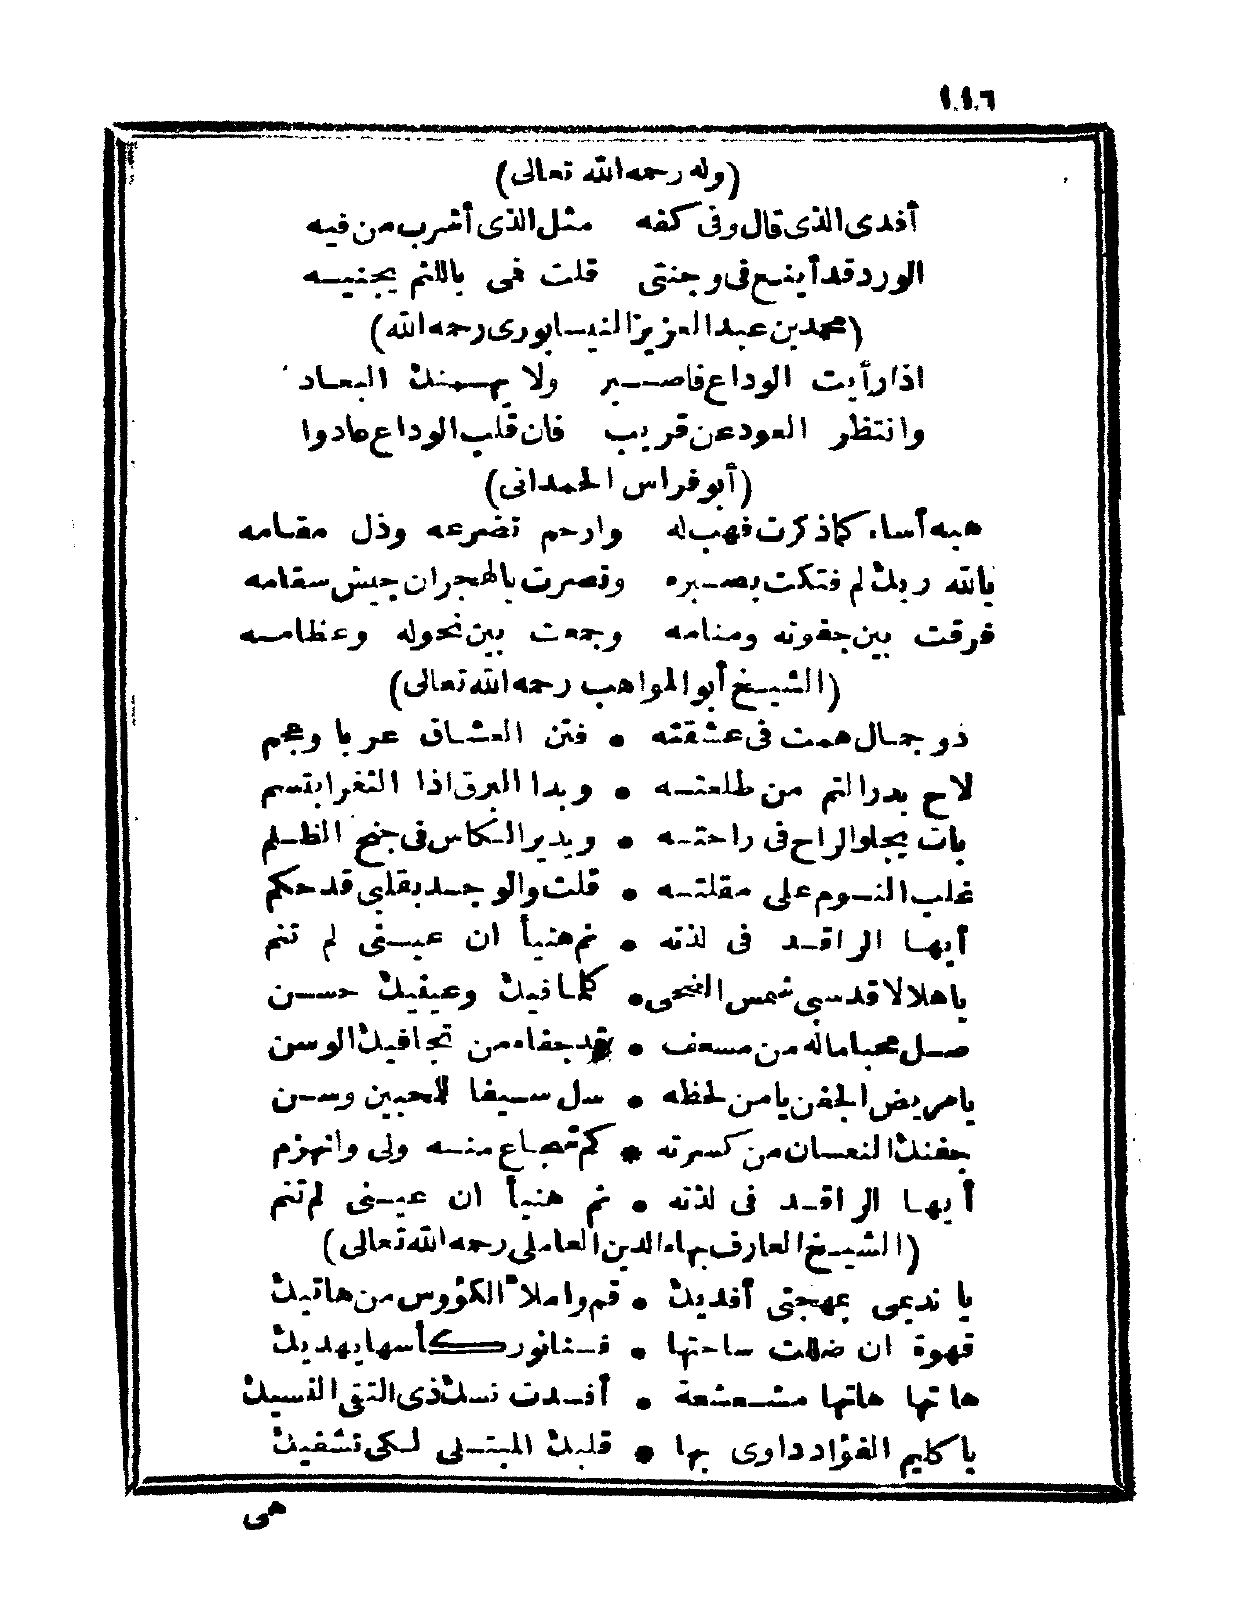 ١١٦
(وله رحمه الله تعالى)
أفدى الذى قال وفى كفه مثل الذى أشرب من فيه
الورد قد أينع فى وجنتى قلت فمى باللثم يجنيه
(محمد بن عبد العزيز النيسابورى رحمه الله)
اذا رأيت الوداع فاصبر ولا يهمنك البعاد
وانتظر العود عن قريب فان قلب الوداع عادوا
(أبو فراس الحمدانى)
هبه أساء كما ذكرت فهب له وارحم تضرعه وذل مقامه
بالله ربك لم فتكت بصبره ونصرت بالهجران جيش سقامه
فرقت بين جفونه ومنامه وجمعت بين نحوله وعظامه
(الشيخ أبو المواهب رحمه الله تعالى)
ذو جمال همت فى عشقته • فتن العشاق عربا وعجم
لاح بدر التم من طلعته • وبدا البرق اذا الثغر ابتسم
بات يجلو الراح فى راحته • ويدير الكاس فى جنح الظلم
غلب النوم على مقلته • قلت والوجد بقلبى قد حكم
أيها الراقد فى لذته • نم هنيأ ان عينى لم تنم
يا هلالا قد سبى شمس الضحى • كلما فيك وعينيك حسن
صل محبا ماله من مسعف • جفاه من تجافيك الوسن
يا مريض الجفن يا من لحظه • سل سيفا للمحبين وسن
جفنك النعسان من كسرته • كم شجاع منه ولى وانهزم
أيها الراقد فى لذته • نم هنيأ ان عينى لم تنم
(الشيخ العارف بهاء الدين العاملى رحمه الله تعالى)
يا نديمى بمهجتى أفديك • قم واملا الكؤوس من هاتيك
قهوة ان ضللت ساحتها • فسنا نور كأسها يهديك
هاتها هاتها مشعشعة • أفسدت نسك ذى التقى النسيك
يا كليم الفؤاد داوى بها • قلبك المبتلى لكى تشفيك
هى